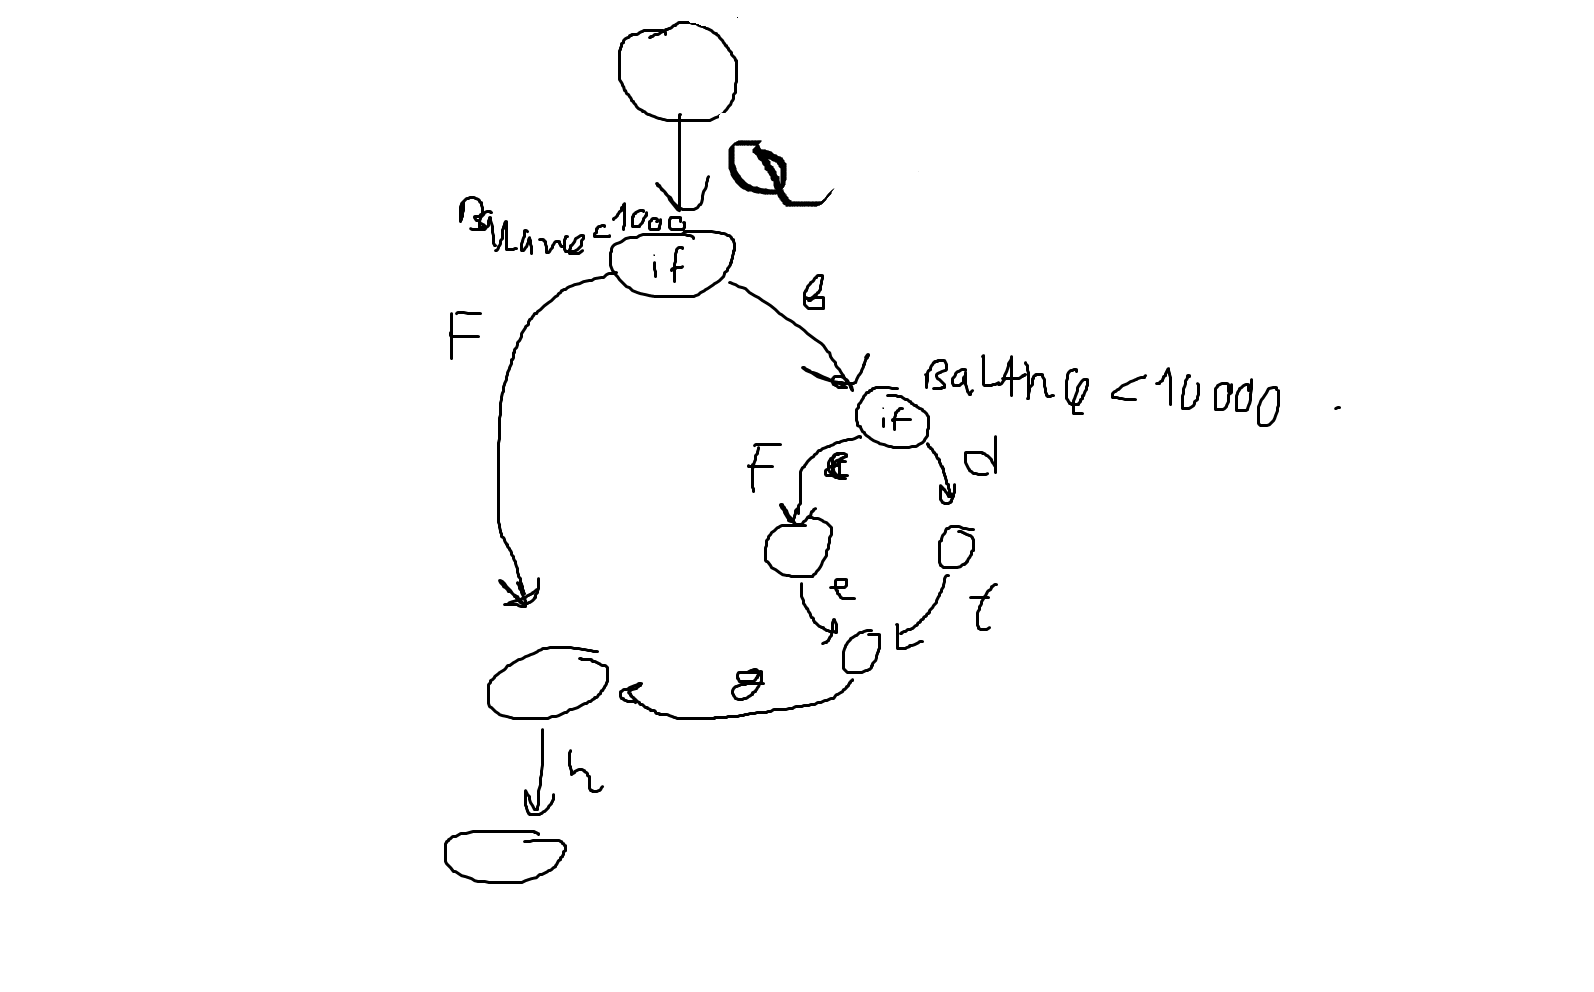 a
Balance <1000
if
F
B
Balance <10000
if
F
c
d
e
f
g
h